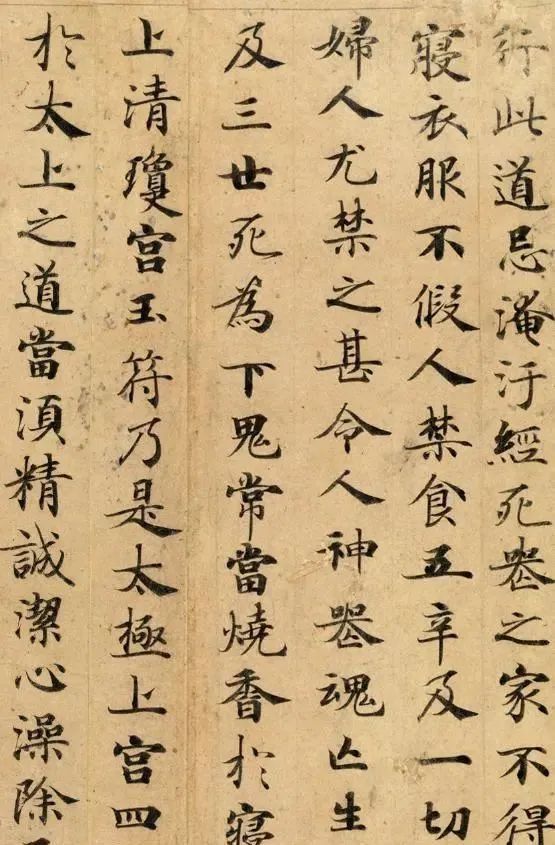 行此道忌淹汙經死喪之家不得
寢衣服不假人禁食五辛及一切
婦人尤禁之甚令人神喪魂亡生
及三世死為下鬼常當燒香於寢
上清瓊宮玉符乃是太極上宮四
於太上之道當須精誠潔心澡除